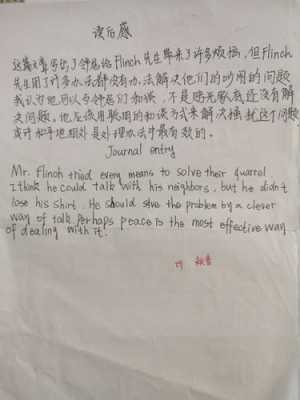 读后感
这篇文章写的了邻居给Flinch先生带来了许多烦恼,但Flinch
先生用了许多办法都没有办法解决他们的吵闹的问题
我认为他可以与邻居们和谈,不是
决问题,他应该用聪明的和谈方式来解决骚扰这个问题
或许和平地相处是处理办法中最有效的。
Journal entry
Mr. Flinch tried every means to solve their quarrel
I think he could talk with his neighbors, but he didn't
lose his shirt. He should slve the problem by a clever
way of talk. Perhaps peace is the most effective way
of dealing with it.